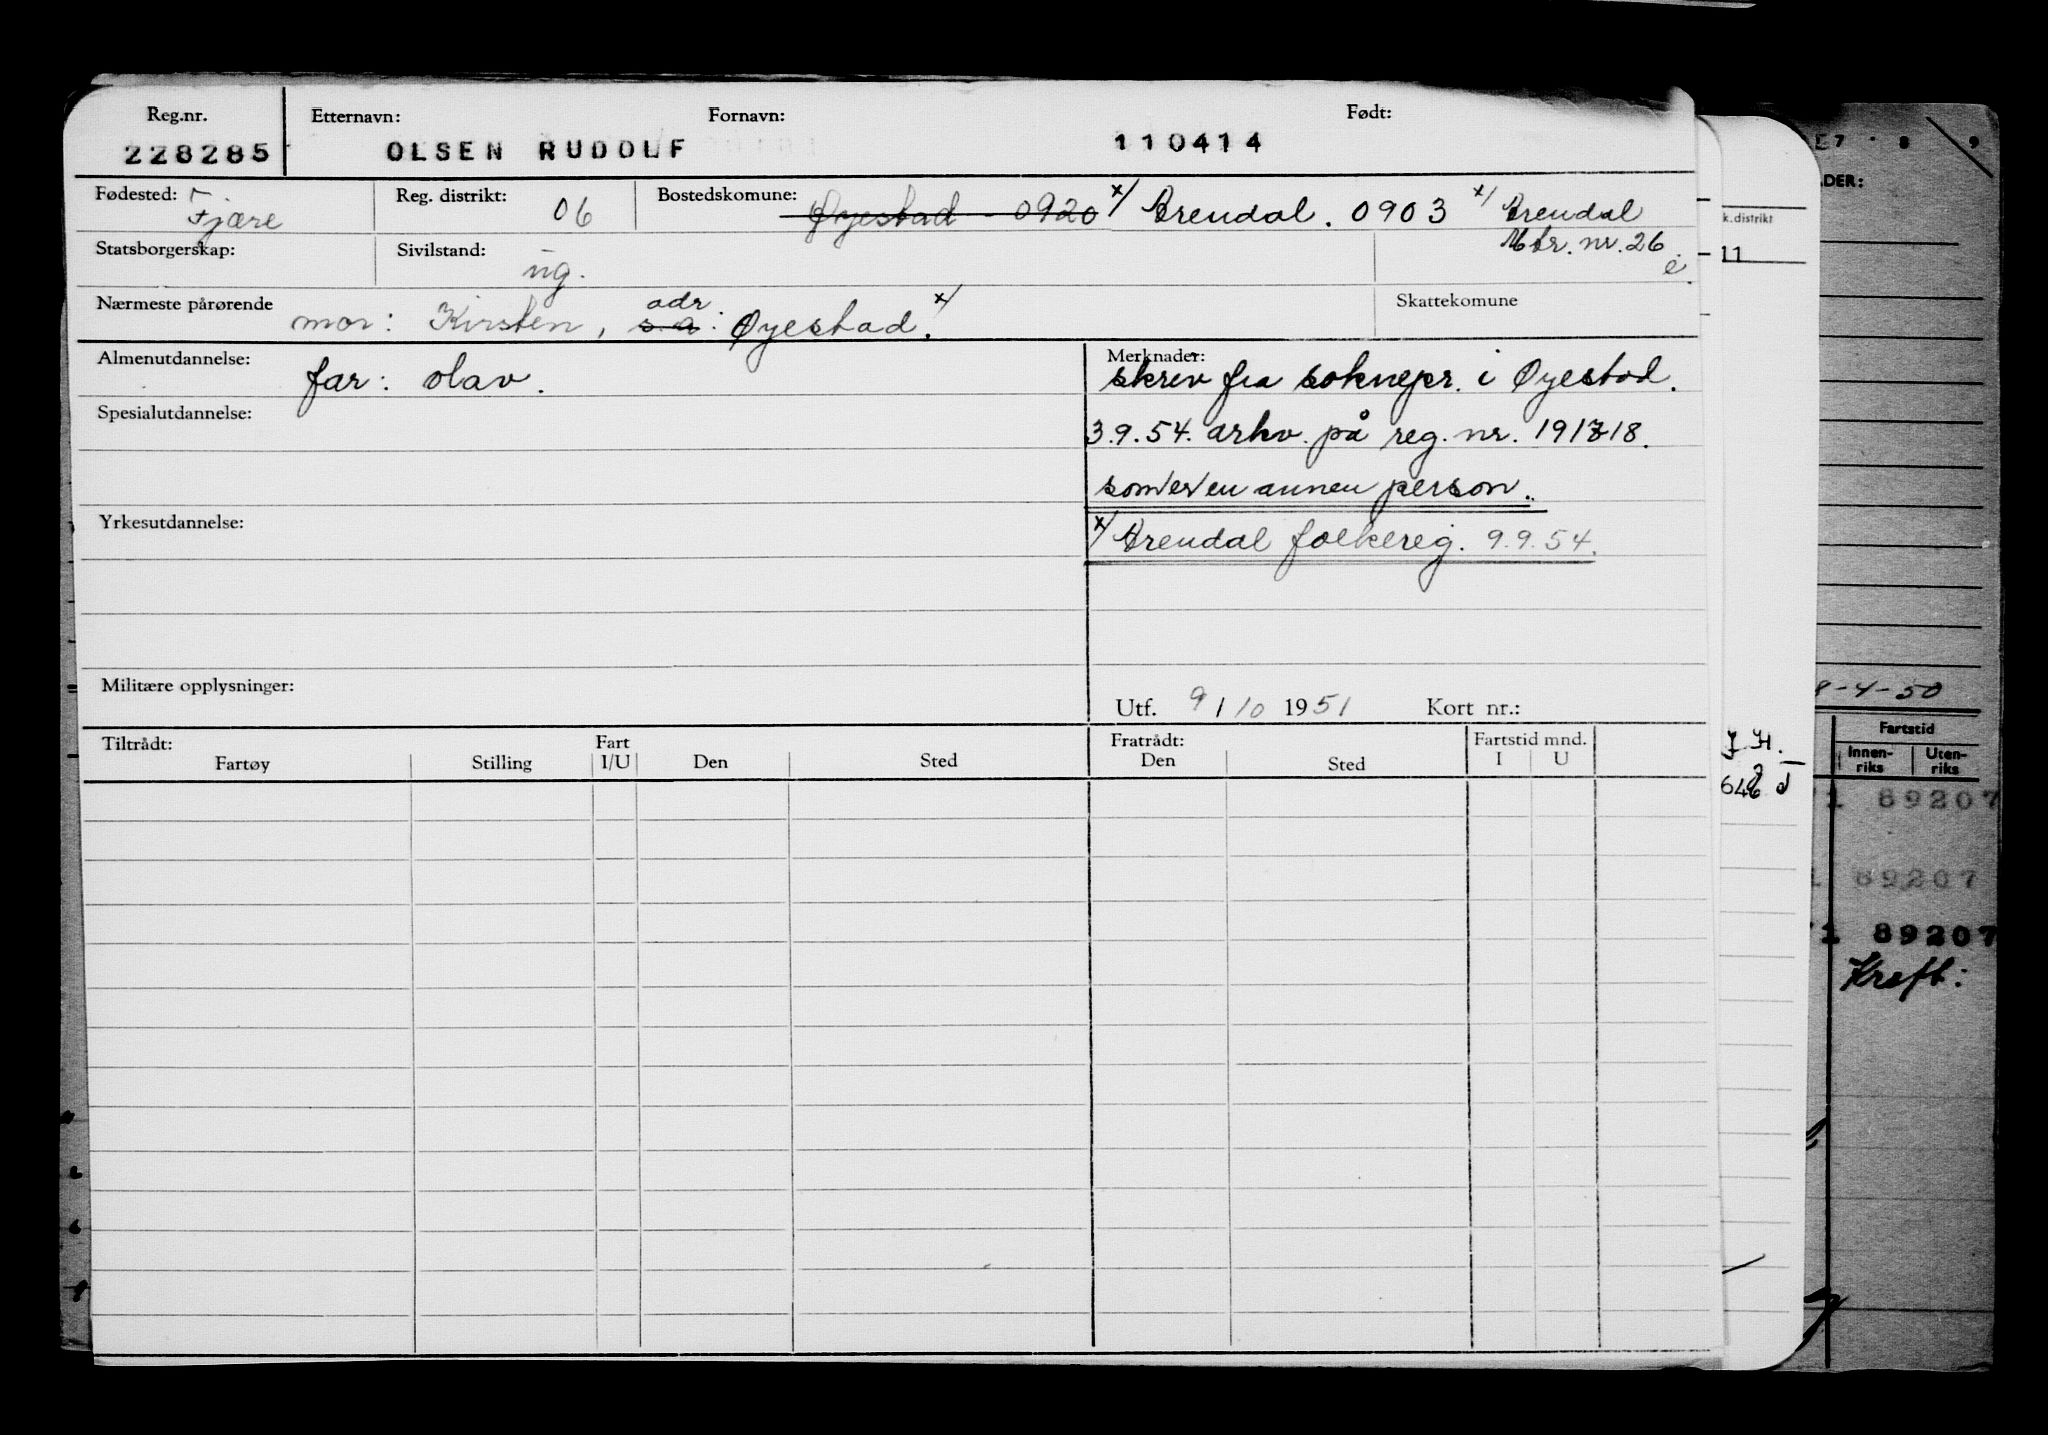 Reg.nr. Etternavn: Fornavn: Født:
228285 OLSEN RUDOLF 110414
Fødested: Fjære Reg. distrikt: 06 Bostedskomune: Øyestad - 0920 x/ Arendal. 0903 x/ Arendal
Statsborgerskap: Sivilstand: ug. Mtr. nr. 26
Nærmeste pårørende mor: Kirsten, s.a. adr: Øyestad. x/ Skattekomune
Almenutdannelse: far: Olav. Merknader:
skrev fra soknepr. i Øyestad.
Spesialutdannelse:
3.9.54. arkv. på reg. nr. 191718.
som er en annen person.
Yrkesutdannelse:
x/ Arendal folkereg. 9.9.54.
Militære opplysninger:
Utf. 9/10 1951 Kort nr.:
Tiltrådt: Fart Fratrådt: Fartstid mnd.
Fartøy Stilling I/U Den Sted Den Sted I U
k.distrikt
11
J.H.
E7 8 9
DER:
8-4-50
Fartstid
Innen-riks Uten-riks
1 89207
1 89207
1 89207
Kreft.